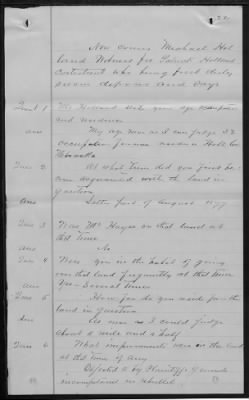 Now comes Michael Hol
land Witness for Patrick Holland
Contestant who being first duly
sworn deposes and says
Quest 1 Mr Holland state your age occupation
and residence
Ans My age near as I can judge 52
occupation farmer residence Holt Co
Nebraska
Ques 2 At what time did you first be
come acquainted with the land in
question
Ans Latter part of August 1877
Ques 3 Was Mr Hayes on that land at
that time
Ans No
Ques 4 Were you in the habit of going
over that land frequently at that time
Ans Yes Several times
Ques 5 How far do you reside from the
land in question
Ans As near as I could judge
about a mile and a half
Ques 6 What improvements were on the land
at that time if any
Objected to by Plaintiffs Counsel
incompetent in rebuttal